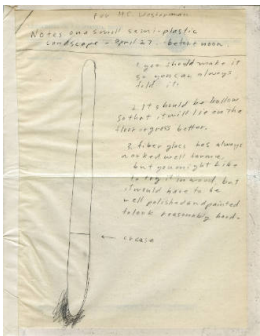 For H.C. Westerman
Notes and small semi-plastic
landscape - April 27. before noon.
1. you should make it
so you can always
fold it.
2. It should be hollow
so that it will lie on the
floor or grass better.
3. fiber glass has always
worked well for me,
but you might like
to try it in wood, but
it would have to be
well polished and painted
to look reasonably hard.
crease